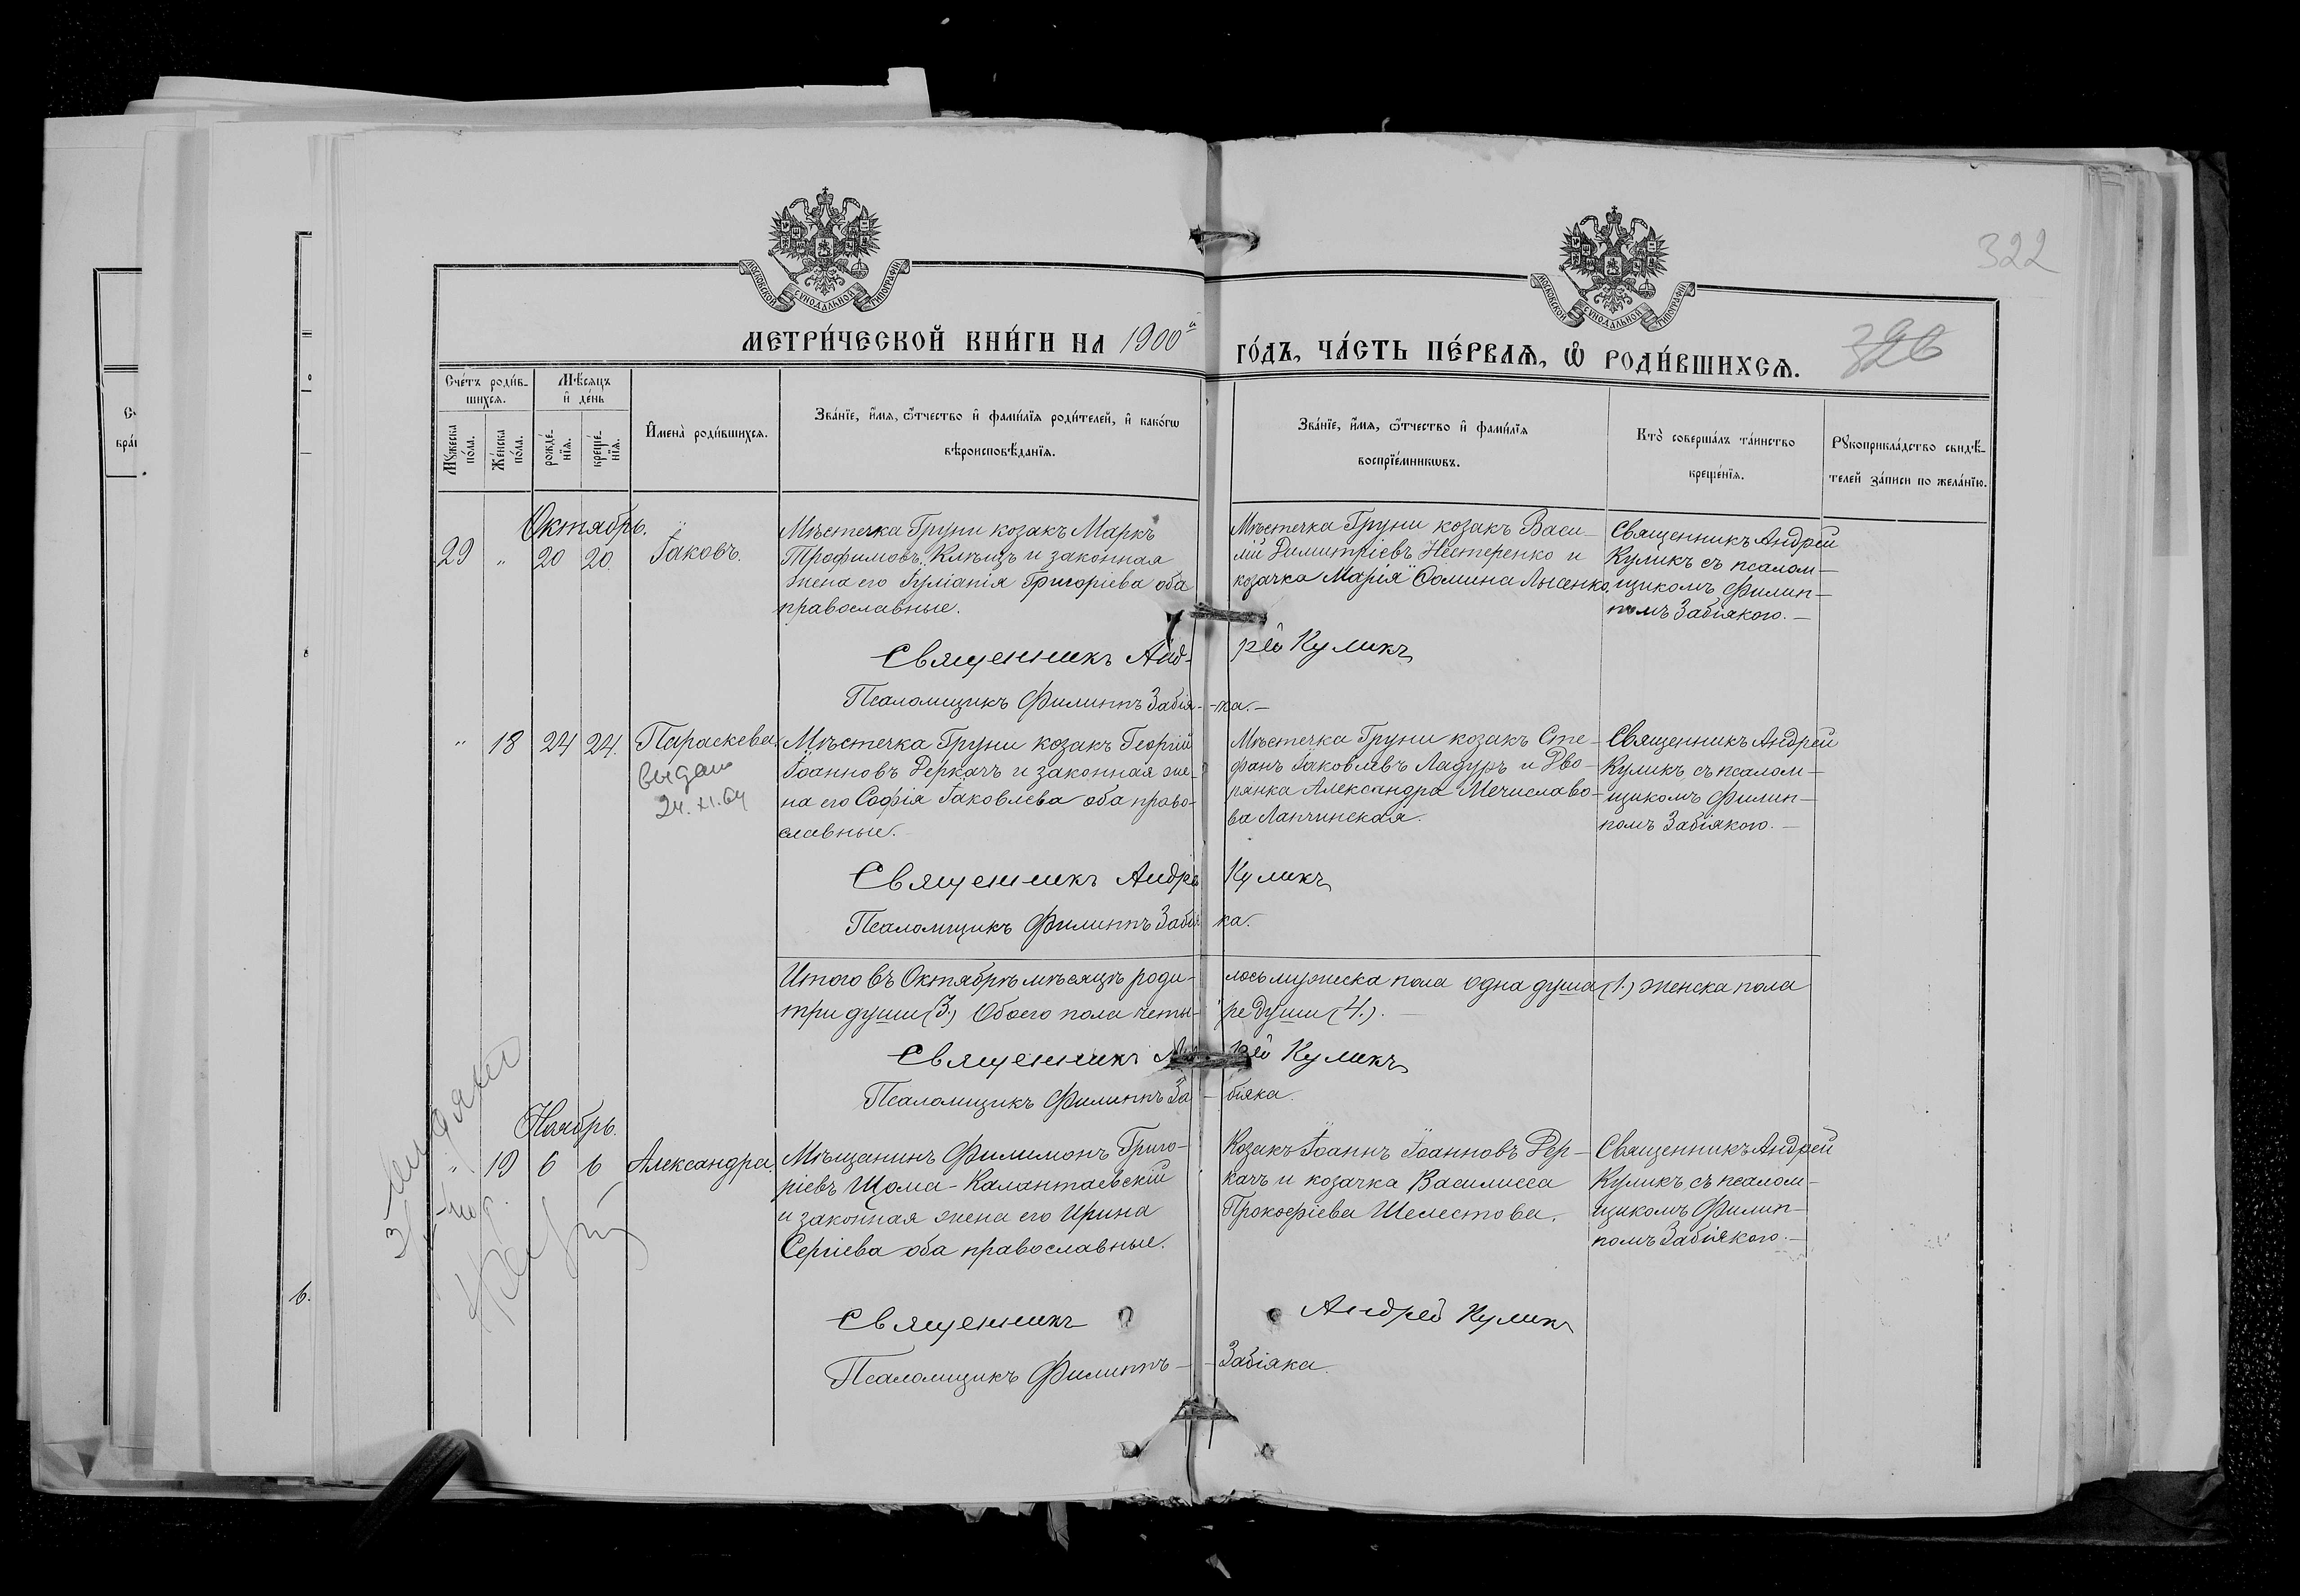 322
326
МОСКОВСКОЙ СѴНОДАЛЬНОЙ ТИПОГРАФІИ
МОСКОВСКОЙ СѴНОДАЛЬНОЙ ТИПОГРАФІИ
МЕТРИ́ЧЕСКОЙ КНИ́ГИ НА 1900й
ГО́ДЪ, ЧА́СТЬ ПЕ́РВАЯ, Ѡ РОДИ́ВШИХСЯ.
Сче́тъ роди́в-
шихся.
Мѣ́сяцъ
и́ де́нь
Му́жеска
по́ла.
Же́нска
по́ла.
рожде́-
нїя.
креще́-
нїя.
И҆мена̀ роди́вшихся.
Зва́нїе, и҆́мя, ѻ҆́тчество и҆ фами́лїя роди́телей, и҆ како́гѡ
вѣроисповѣ́данїя.
Зва́нїе, и҆́мя, ѻ҆́тчество и҆ фами́лїя
воспрїе́мникѡвъ.
Кто̀ соверша́лъ та́инство
креще́нїя.
Рꙋкоприкла́дство свидѣ́-
телей за́писи по жела́нїю.
Октябрь.
29 " 20 20. Іаковъ.
Мѣстечка Груни козакъ Маркъ
Трофимовъ Клѣщъ и законная
жена его Іуліанія Григоріева оба
православные.
Мѣстечка Груни козакъ Васи-
лій Димитріевъ Нестеренко и
козачка Марія Ѳомина Лысенко.
Священникъ Андрей
Куликъ съ псалом-
щикомъ Филип-
помъ Забіякою.
Священникъ Андрей Куликъ
Псаломщикъ Филиппъ Забія-ка.
" 18 24 24. Параскева.
выдано
24.XI.64
Мѣстечка Груни козакъ Георгій
Іоанновъ Деркачъ и законная же-
на его Софія Іаковлева оба право-
славные.
Мѣстечка Груни козакъ Сте-
фанъ Іаковлевъ Ладуръ и Дво-
рянка Александра Мечиславо-
ва Лапчинская.
Священникъ Андрей
Куликъ съ псалом-
щикомъ Филип-
помъ Забіякою.
Священникъ Андре Куликъ
Псаломщикъ Филиппъ Забія ка.
Итого въ Октябрѣ мѣсяцѣ роди-лось мужеска пола одна душа (1.) женска пола
три души (3.) Обоего пола четы-ре души (4.).
Священникъ Андрей Куликъ
Псаломщикъ Филиппъ За-біяка.
Ноябрь.
" 19 6 6 Александра.
Мѣщанинъ Филимонъ Григо-
ріевъ Шома-Калантаевскій
и законная жена его Ирина
Сергіева оба православные.
Козакъ Іоаннъ Іоанновъ Дер-
качъ и козачка Василисса
Прокофіева Шелестова.
Священникъ Андрей
Куликъ съ псалом-
щикомъ Филип-
помъ Забіякою.
Священникъ Андрей Куликъ
Псаломщикъ Филиппъ Забіяка.